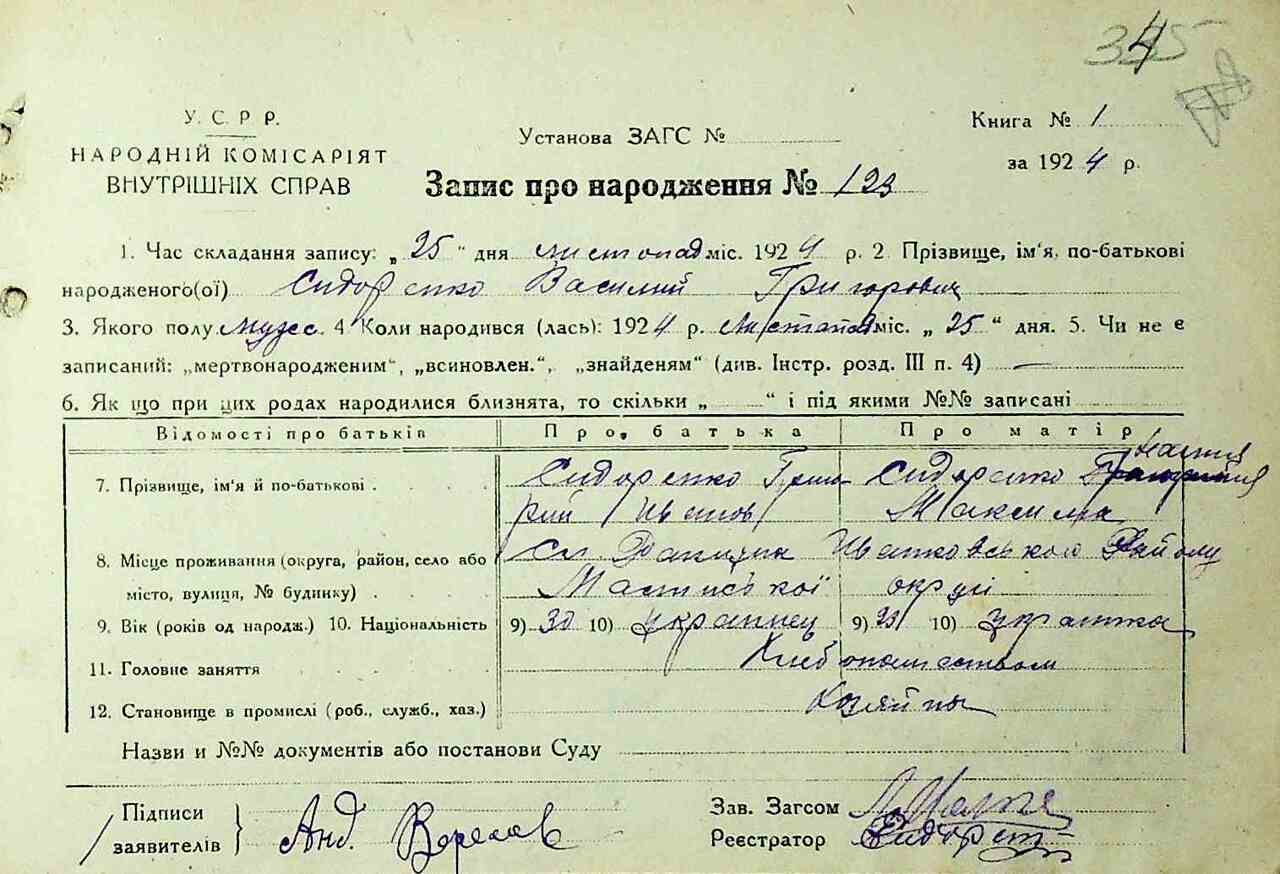 345
У. С. Р. Р.
НАРОДНІЙ КОМІСАРІЯТ
ВНУТРІШНІХ СПРАВ
Установа ЗАГС №
Книга № 1
за 1924 р.
Запис про народження № 123
1. Час складання запису: „25" дня листопад міс. 1924 р. 2 Прізвище, ім'я, по-батькові
народженого(ої) Сидоренко Василий Григорович
3. Якого полу мужес. 4 Коли народився (лась): 1924 р. листопад міс. „25" дня. 5. Чи не є
записаний: „мертвонародженим", „всиновлен.", „знайденям" (див. Інстр. розд. III п. 4)
6. Як що при цих родах народилися близнята, то скільки „ " і під якими №№ записані
Відомості про батьків Про батька Про матір
7. Прізвище, ім'я й по-батькові . Сидоренко Григо Сидоренко
рий Иванов Максима
8. Місце проживання (округа, район, село або Иванковського Району
місто, вулиця, № будинку) . . . . округи
9. Вік (років од народж.) 10. Національність 9) 30 10) украинец 9) 10) украинка
11. Головне заняття Хлебопашеством
12. Становище в промислі (роб., служб., хаз.) Хозяйны
Назви и №№ документів або постанови Суду
Підписи
заявителів Анд.
Зав. Загсом
Реєстратор Сидорен